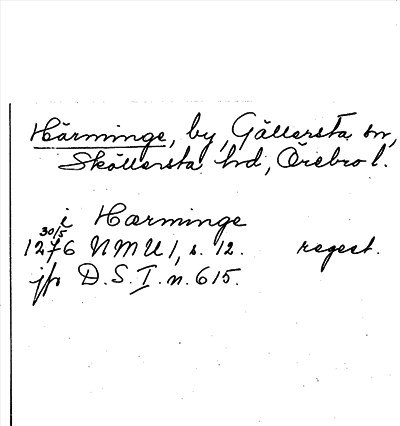 Härminge, by, Gällersta sn,
Sköllersta hd, Örebro l.
i Hærminge
30/5
1276 NMU 1, s. 12. regest.
jfr D.S. I. n. 615.